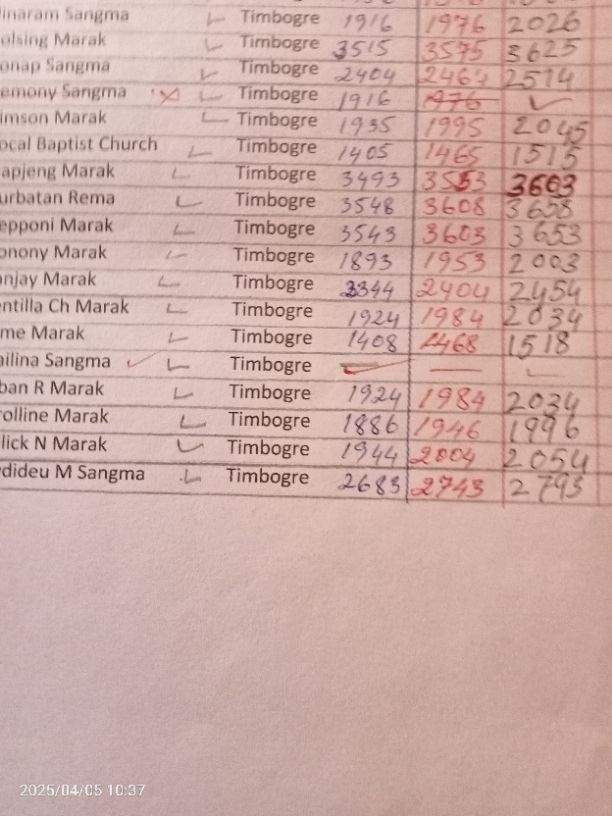 linaram Sangma Timbogre 1916 1976 2026
olsing Marak Timbogre 3515 3575 3625
onap Sangma Timbogre 2404 2464 2514
emony Sangma × Timbogre 1916 1976 ✓
imson Marak Timbogre 1935 1995 2045
ocal Baptist Church Timbogre 1405 1465 1515
apjeng Marak Timbogre 3493 3553 3603
urbatan Rema Timbogre 3548 3608 3658
epponi Marak Timbogre 3543 3603 3653
onony Marak Timbogre 1893 1953 2003
anjay Marak Timbogre 2344 2404 2454
entilla Ch Marak Timbogre 1924 1984 2034
me Marak Timbogre 1408 1468 1518
ailina Sangma ✓ Timbogre
ban R Marak Timbogre 1924 1984 2034
rolline Marak Timbogre 1886 1946 1996
llick N Marak Timbogre 1944 2004 2054
dideu M Sangma Timbogre 2683 2743 2793
2025/04/05 10:37